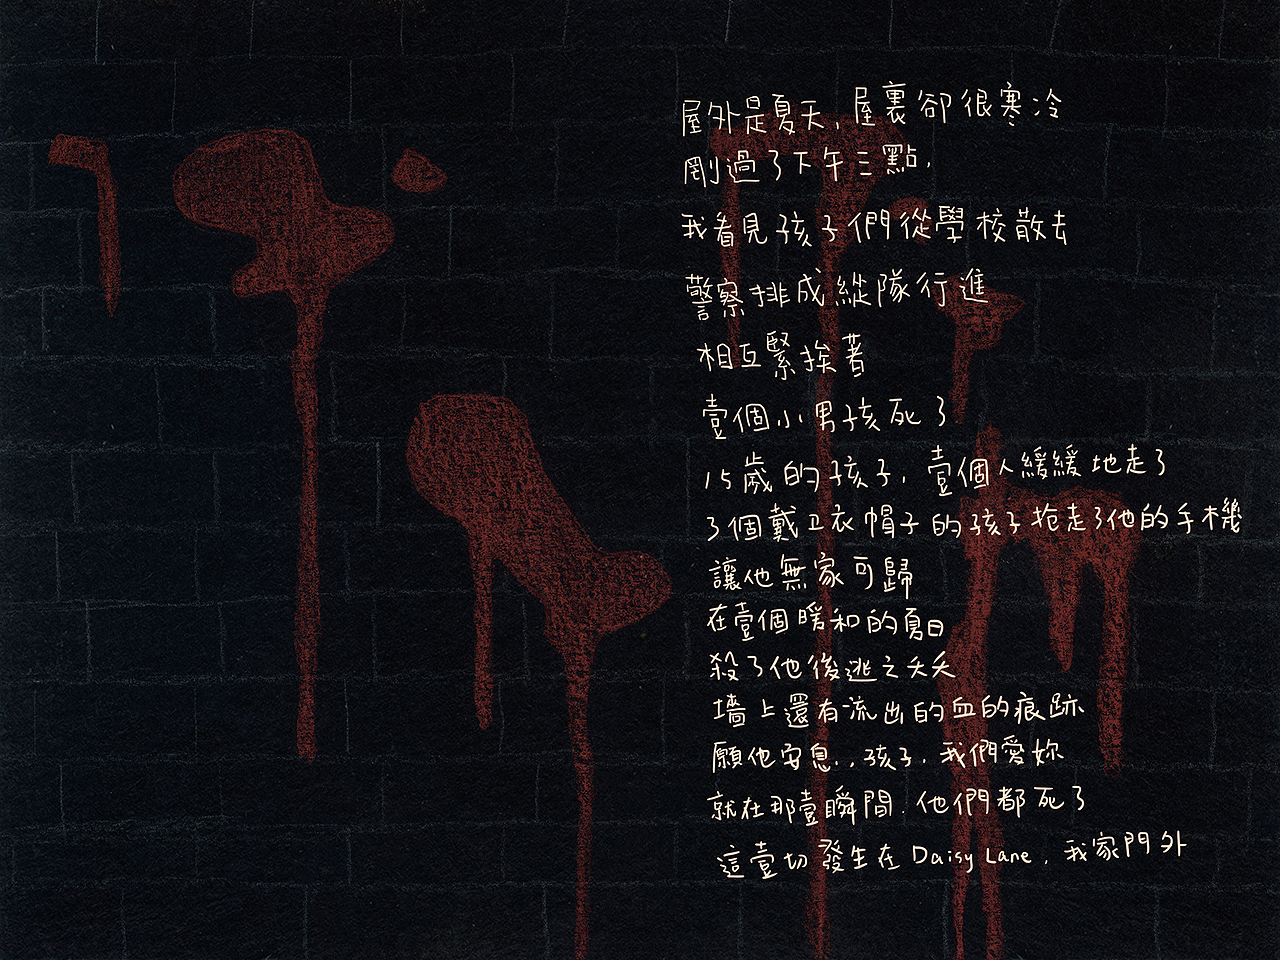 屋外是夏天，屋裏卻很寒冷
剛過了下午三點，
我看見孩子們從學校散去
警察排成縱隊行進
相互緊挨著
壹個小男孩死了
15歲的孩子，壹個人緩緩地走了
3個戴卫衣帽子的孩子抢走了他的手機
讓他無家可歸
在壹個暖和的夏日
殺了他後逃之夭夭
墻上還有流出的血的痕跡
願他安息，，孩子，我們愛妳
就在那壹瞬間，他們都死了
這壹切發生在 Daisy Lane，我家門外